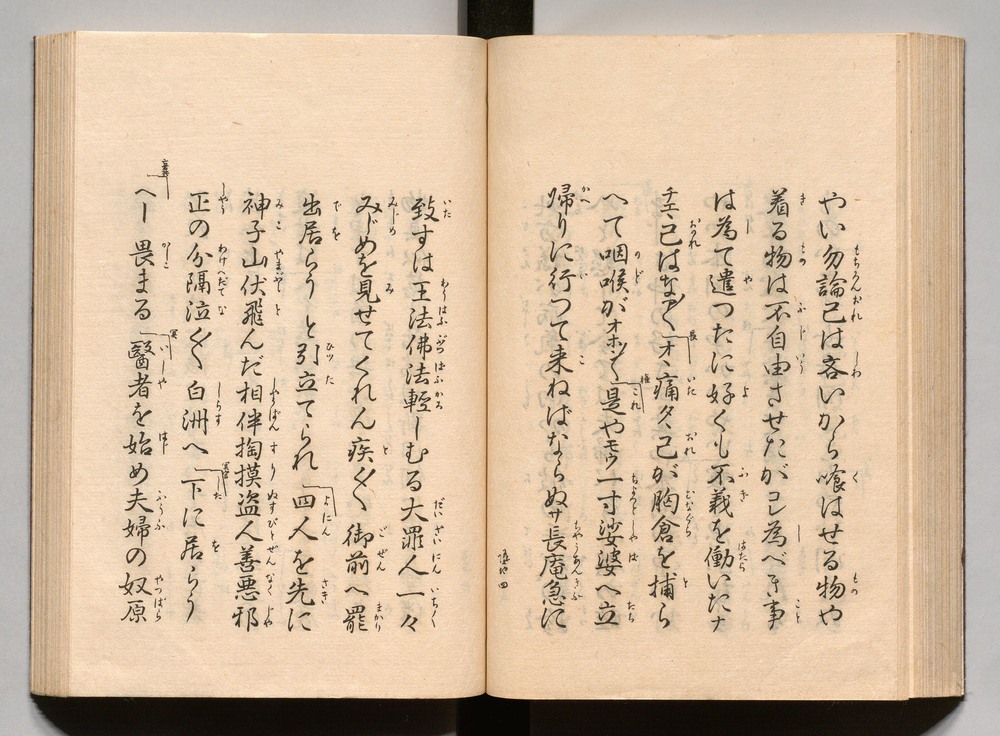 やい勿論己は吝いから喰はせる物や
着る物は不自由させたがコレ為べき事
は為て遣つたに好くも不義を働いたナ
チエヽ己はなア〱オヽ痛タ〱己が胸倉を捕ら
へて咽喉がオホン〱是やモウ一寸娑婆へ立
帰りに行つて来ねばならぬサ長庵急に
致すは王法佛法軽しむる大罪人一々
みじめを見せてくれん疾く〱御前へ罷
出居らうと引立てられ四人を先に
神子山伏飛んだ相伴掏摸盗人善悪邪
正の分隔泣く〱白洲へ下に居らう
へー畏まる醫者を始め夫婦の奴原